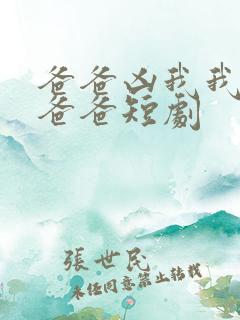 爸爸凶我我
爸爸短劇
張世民
未經同意禁止转載